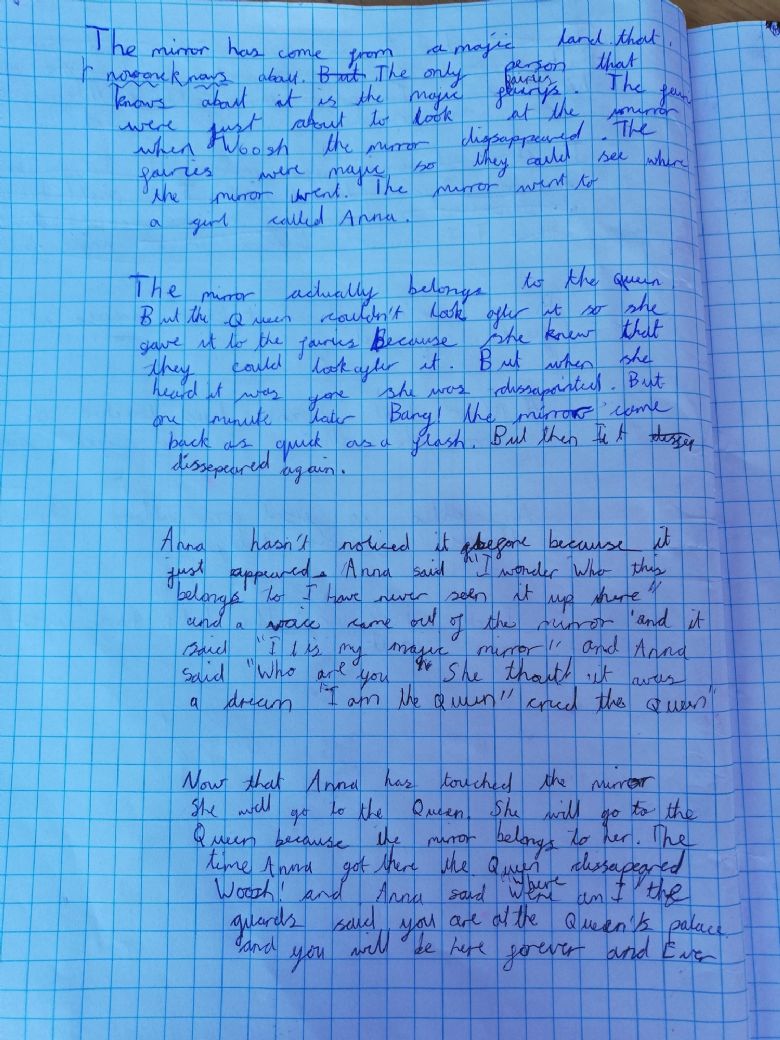 The mirror has come from a majic land that
nowonek nows about. But The only person that
knows about it is the majic fairys. fairies The fair
were just about to look at the mirror
when Woosh the mirror digsappeared. The
fairies were majic so they could see where
the mirror went. The mirror went to
a girl called Anna.
The mirror actually belongs to the Queen
But the Queen couldn't look after it so she
gave it to the fairies Because she knew that
they could look after it. But when she
heard it was gone she was dissapointed. But
one minute later Bang! the mirror came
back as quick as a flash. But then It
dissepeared again.
Anna hasn't noticed it before because it
just appeared. Anna said "I wonder who this
belongs to I have never seen it up there"
and a voice came out of the mirror and it
said "It is my magic mirror" and Anna
said "Who are you" She thoutt it was
a dream "I am the Queen" cried the Queen"
Now that Anna has touched the mirror
She will go to the Queen. She will go to the
Queen because the mirror belongs to her. The
time Anna got there the Queen dissapeared
Woosh! and Anna said "Were where am I" the
guards said you are at the Queen's palace
and you will be here forever and Ever